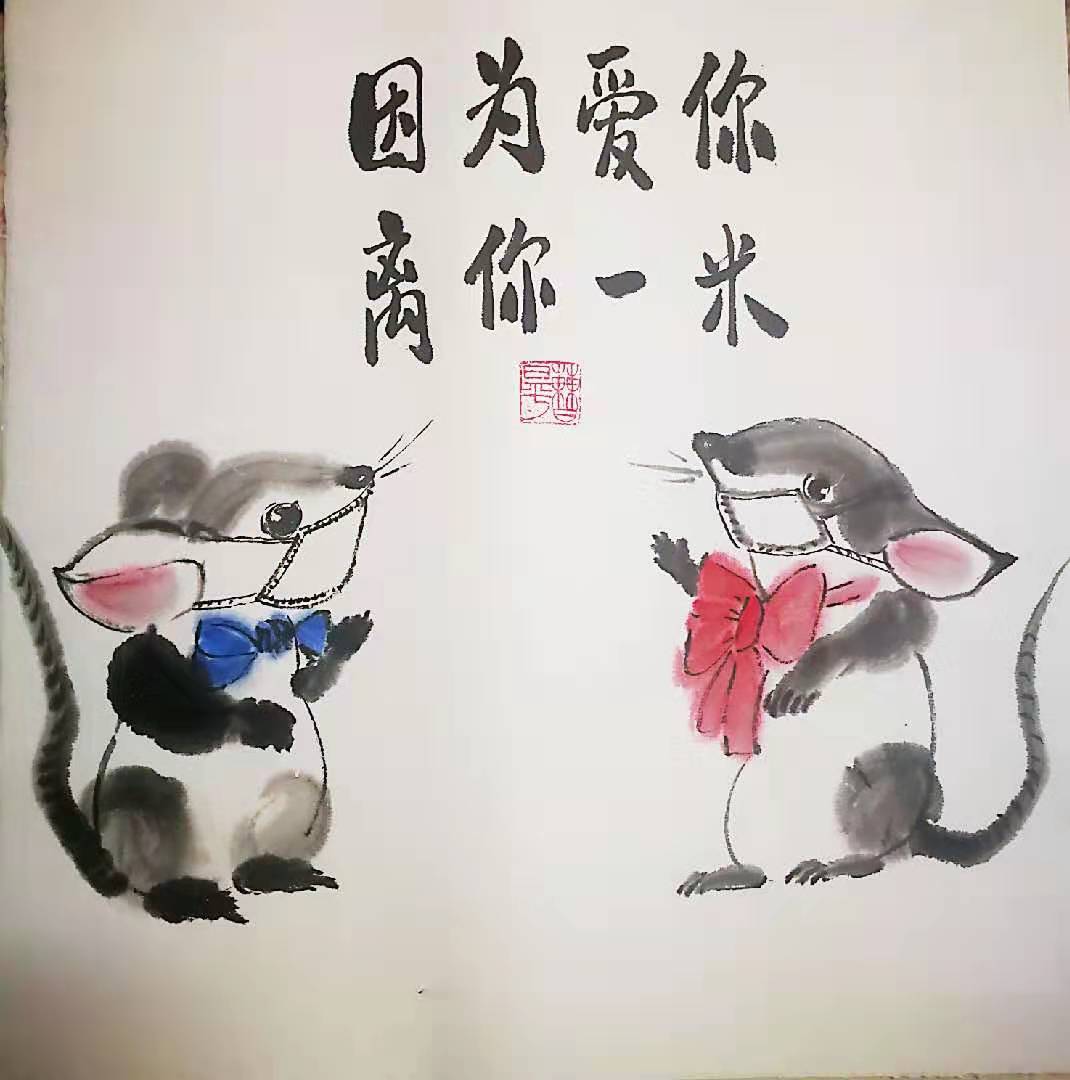 因为爱你
离你一米